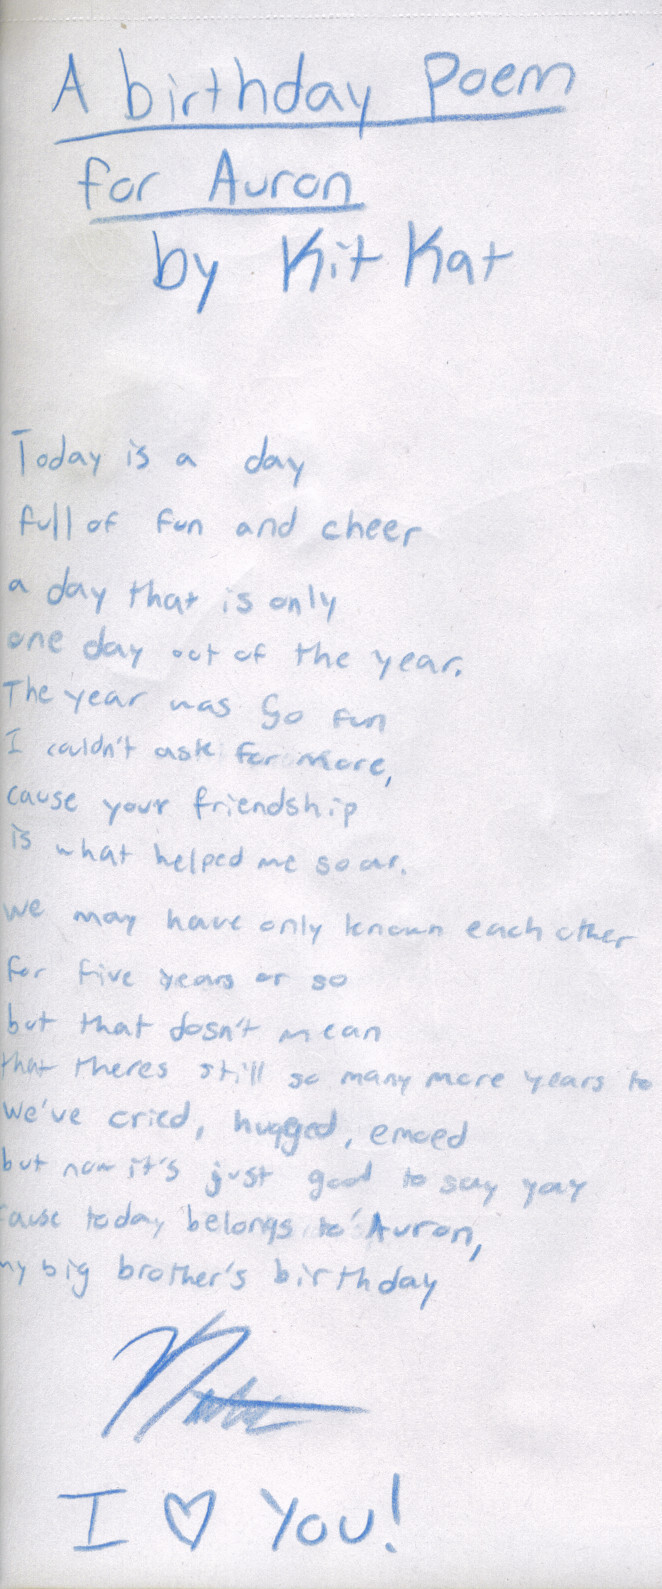 A birthday Poem
for Auron
by Kit Kat
Today is a day
full of fun and cheer
a day that is only
one day out of the year.
The year was so fun
I couldn't ask for more,
cause your friendship
is what helped me soar.
we may have only known each other
for five years or so
but that dosn't mean
that theres still so many more years to
we've cried, hugged, emoed
but now it's just good to say yay
cause today belongs to Auron,
my big brother's birthday
I ♡ You!